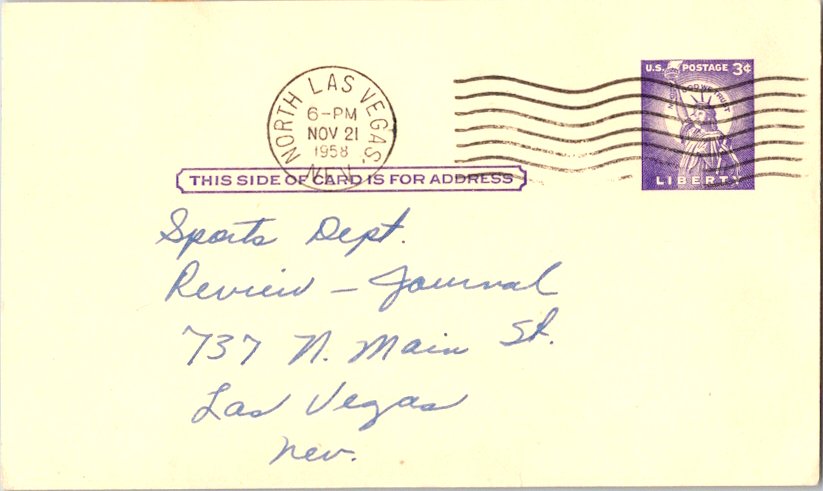 NORTH LAS VEGAS.
6-PM
NOV 21
1958
NEV.
U.S. POSTAGE 3¢
IN GOD WE TRUST
LIBERTY
THIS SIDE OF CARD IS FOR ADDRESS
Sports Dept.
Review - Journal
737 N. Main St.
Las Vegas
Nev.